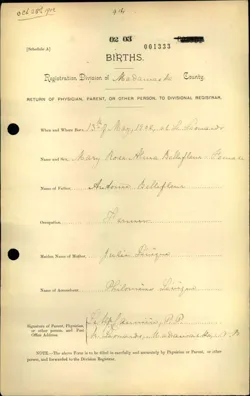 02 03
001333
[Schedule A.]
BIRTHS.
Registration Division of Madawaska County.
RETURN OF PHYSICIAN, PARENT, OR OTHER PERSON, TO DIVISIONAL REGISTRAR.
When and Where Born, 13th of May, St Leonards
Name and Sex, Mary Rose Bellefleur Female
Name of Father, Antoine Bellefleur
Occupation, Farmer
Maiden Name of Mother, Julie Levigne
Name of Accoucheur, Levigne
Signature of Parent, Physician, or other person, and Post Office Address
St Leonards, Madawaska
NOTE.—The above Form is to be filled in carefully and accurately by Physician or Parent, or other person, and forwarded to the Division Registrars.